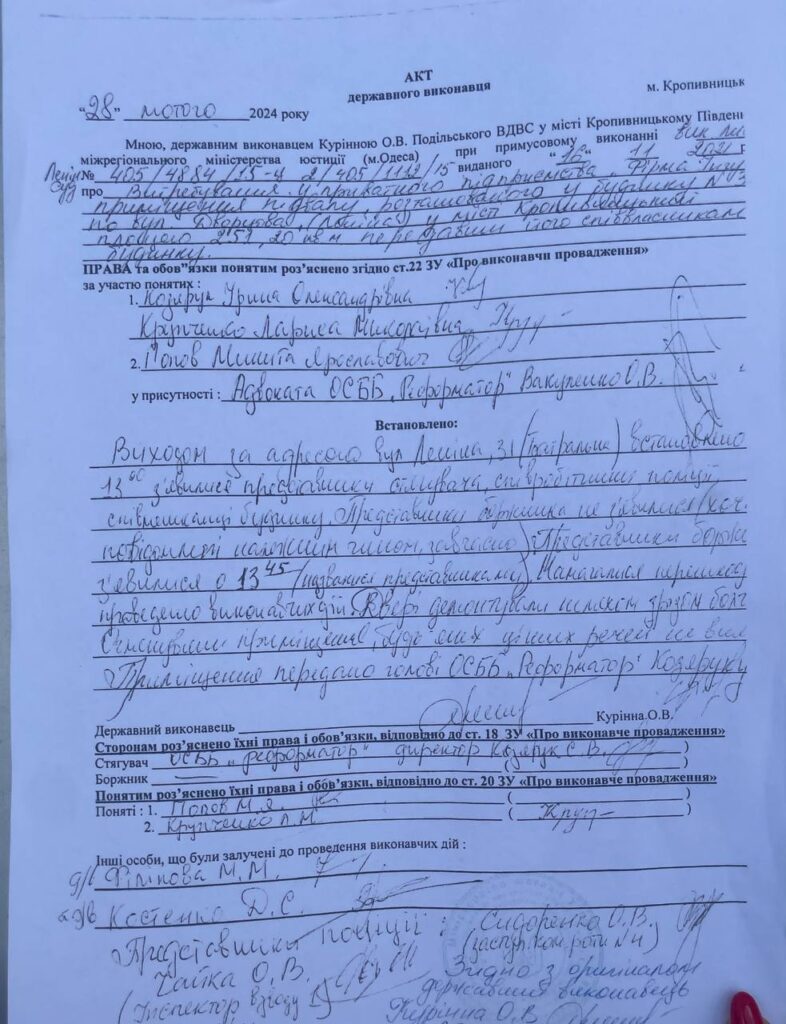 АКТ
державного виконавця
м. Кропивницьк
"28" лютого 2024 року
Мною, державним виконавцем Курінною О.В. Подільського ВДВС у місті Кропивницькому Південн
міжрегіонального міністерства юстиції (м.Одеса) при примусовому виконанні вик.
Ленін суд № 405/4884/15-ц 2/405/1132/15 виданого "16" 11 2021 р
про Витребування у приватного підприємства „Фірма
приміщення підвалу, розташованого у будинку № 3
по вул. Дворцова, (Леніна) у місті Кропивницький
площею 251,20 кв.м передавши його співвласникам
будинку.
ПРАВА та обов"язки понятим роз'яснено згідно ст.22 ЗУ «Про виконавчи провадження»
за участю понятих :
1. Козярук Ірина Олександрівна
Крупченко Лариса Миколаївна
2. Попов Микита Ярославович
у присутності : Адвоката ОСББ „Реформатор" Вакуленко О.В.
Встановлено:
Виходом за адресою вул Леніна, 31 (Театральна) встановлено
13⁰⁰ з'явилися представники стягувача, співробітники поліції,
співмешканці будинку. Представники боржника не з'явилися (хоч
повідомлені належним чином, завчасно). Представники борж
з'явилися о 13⁴⁵ (назвалися представниками). Намагалися перешкод
проведено виконавчих дій. Двері демонтували шляхом зрізом болт
приміщення, будь яких цінних речей не
Приміщення передано голові ОСББ „Реформатор" Козяруку
Державний виконавець Курінна О.В.
Сторонам роз'яснено їхні права і обов'язки, відповідно до ст. 18 ЗУ «Про виконавче провадження»
Стягувач ОСББ „Реформатор" директор Козярук Є.В. ( )
Боржник — ( )
Понятим роз'яснено їхні права і обов'язки, відповідно до ст. 20 ЗУ «Про виконавче провадження»
Поняті : 1. Попов М.Я. ( )
2. Крупченко Л.М. ( Круп )
Інші особи, що були залучені до проведення виконавчих дій :
д/в Філінова М.М.
д/в Костенко Д.С.
Представники поліції : Сидоренко О.В.
(заступ. ком. роти №4)
Чайка О.В.
(Інспектор взводу
Згідно з оригіналом
державний виконавець
Курінна О.В.